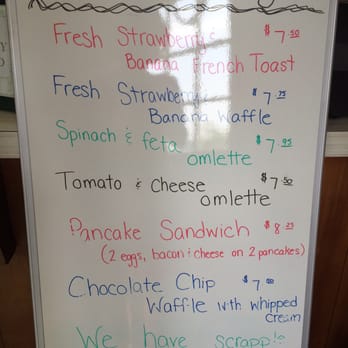 Fresh Strawberry & $7.50
Banana French Toast
Fresh Strawberry & $7.75
Banana Waffle
Spinach & feta $7.95
omlette
Tomato & Cheese $7.50
omlette
Pancake Sandwich $8.25
(2 eggs, bacon & cheese on 2 pancakes)
Chocolate Chip $7.00
Waffle with whipped
cream
We have scrapple